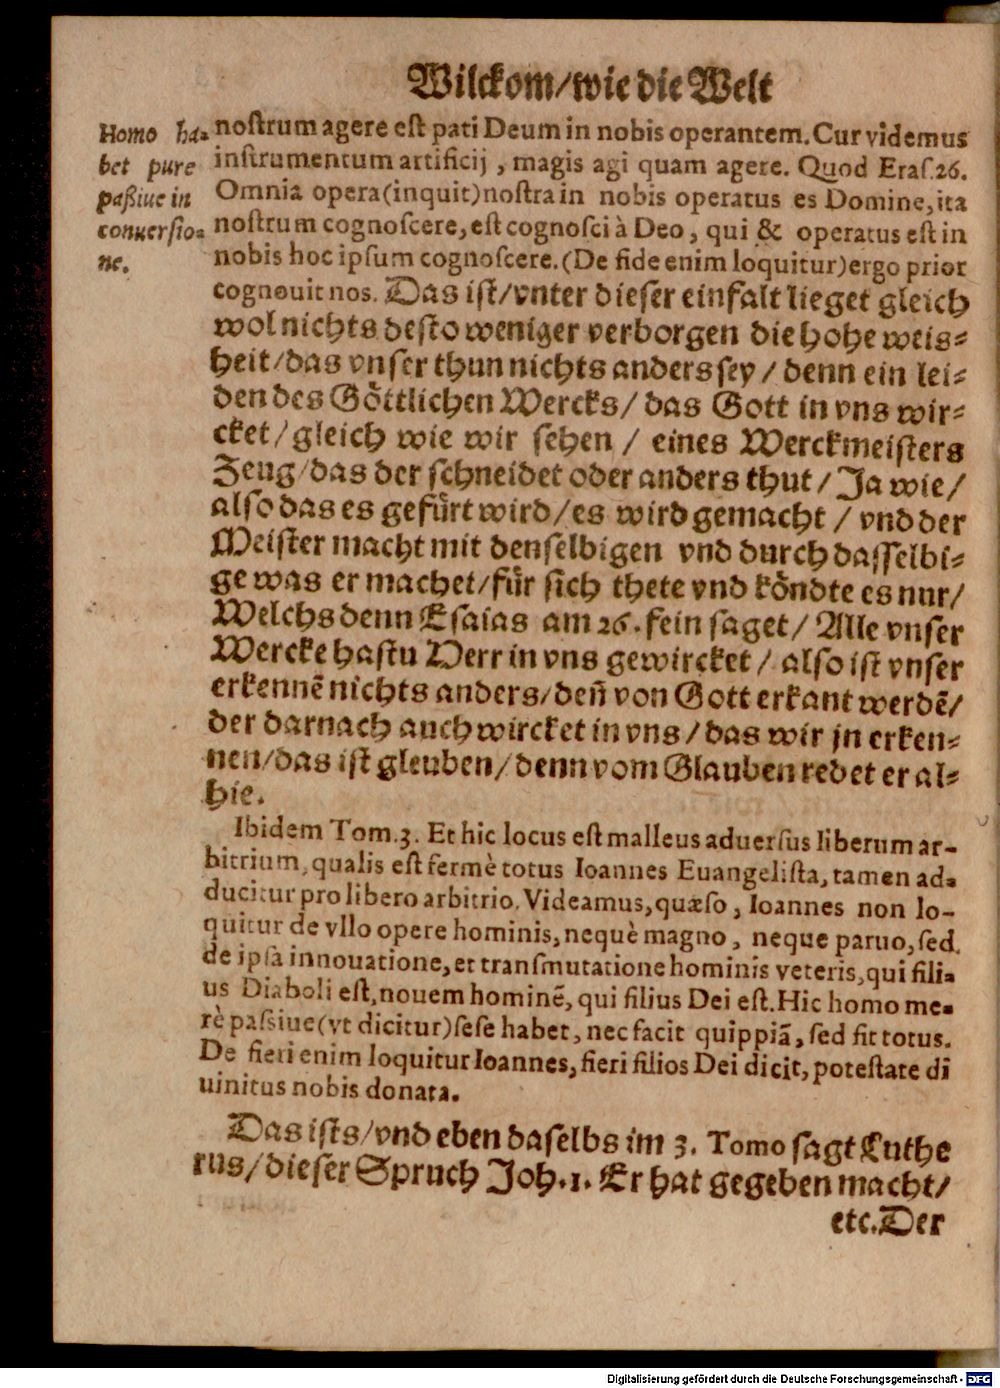 Wilckom/wie die Welt
Homo ha-
bet pure
paßiue in
conuersio-
ne.
nostrum agere est pati Deum in nobis operantem. Cur videmus
instrumentum artificij, magis agi quam agere. Quod Eras.26.
Omnia opera (inquit) nostra in nobis operatus es Domine, ita
nostrum cognoscere, est cognosci à Deo, qui & operatus est in
nobis hoc ipsum cognoscere. (De fide enim loquitur) ergo prior
cognouit nos. Das ist/vnter dieser einfalt lieget gleich
wol nichts desto weniger verborgen die hohe weis-
heit/das vnser thun nichts anders sey/denn ein lei-
den des Göttlichen Wercks/das Gott in vns wir-
cket/gleich wie wir sehen/eines Werckmeisters
Zeug/das der schneidet oder anders thut/Ja wie/
also das es gefürt wird/es wird gemacht/vnd der
Meister macht mit denselbigen vnd durch dasselbi-
ge was er machet/für sich thete vnd köndte es nur/
Welchs denn Esaias am 26. fein saget/Alle vnser
Wercke hastu Herr in vns gewircket/also ist vnser
erkennē nichts anders/deñ von Gott erkant werdē/
der darnach auch wircket in vns/das wir jn erken-
nen/das ist gleuben/denn vom Glauben redet er al-
hie.
Ibidem Tom.3. Et hic locus est malleus aduersus liberum ar-
bitrium, qualis est fermè totus Ioannes Euangelista, tamen ad-
ducitur pro libero arbitrio. Videamus, quæso, Ioannes non lo-
quitur de vllo opere hominis, nequè magno, neque paruo, sed
de ipsa innouatione, et transmutatione hominis veteris, qui fili-
us Diaboli est, nouem hominē, qui filius Dei est. Hic homo me-
rè passiue (vt dicitur) sese habet, nec facit quippiā, sed fit totus.
De fieri enim loquitur Ioannes, fieri filios Dei dicit, potestate di
uinitus nobis donata.
Das ists/vnd eben daselbs im 3. Tomo sagt Luthe
rus/dieser Spruch Joh.1. Er hat gegeben macht/
etc. Der
Digitalisierung gefördert durch die Deutsche Forschungsgemeinschaft - DFG